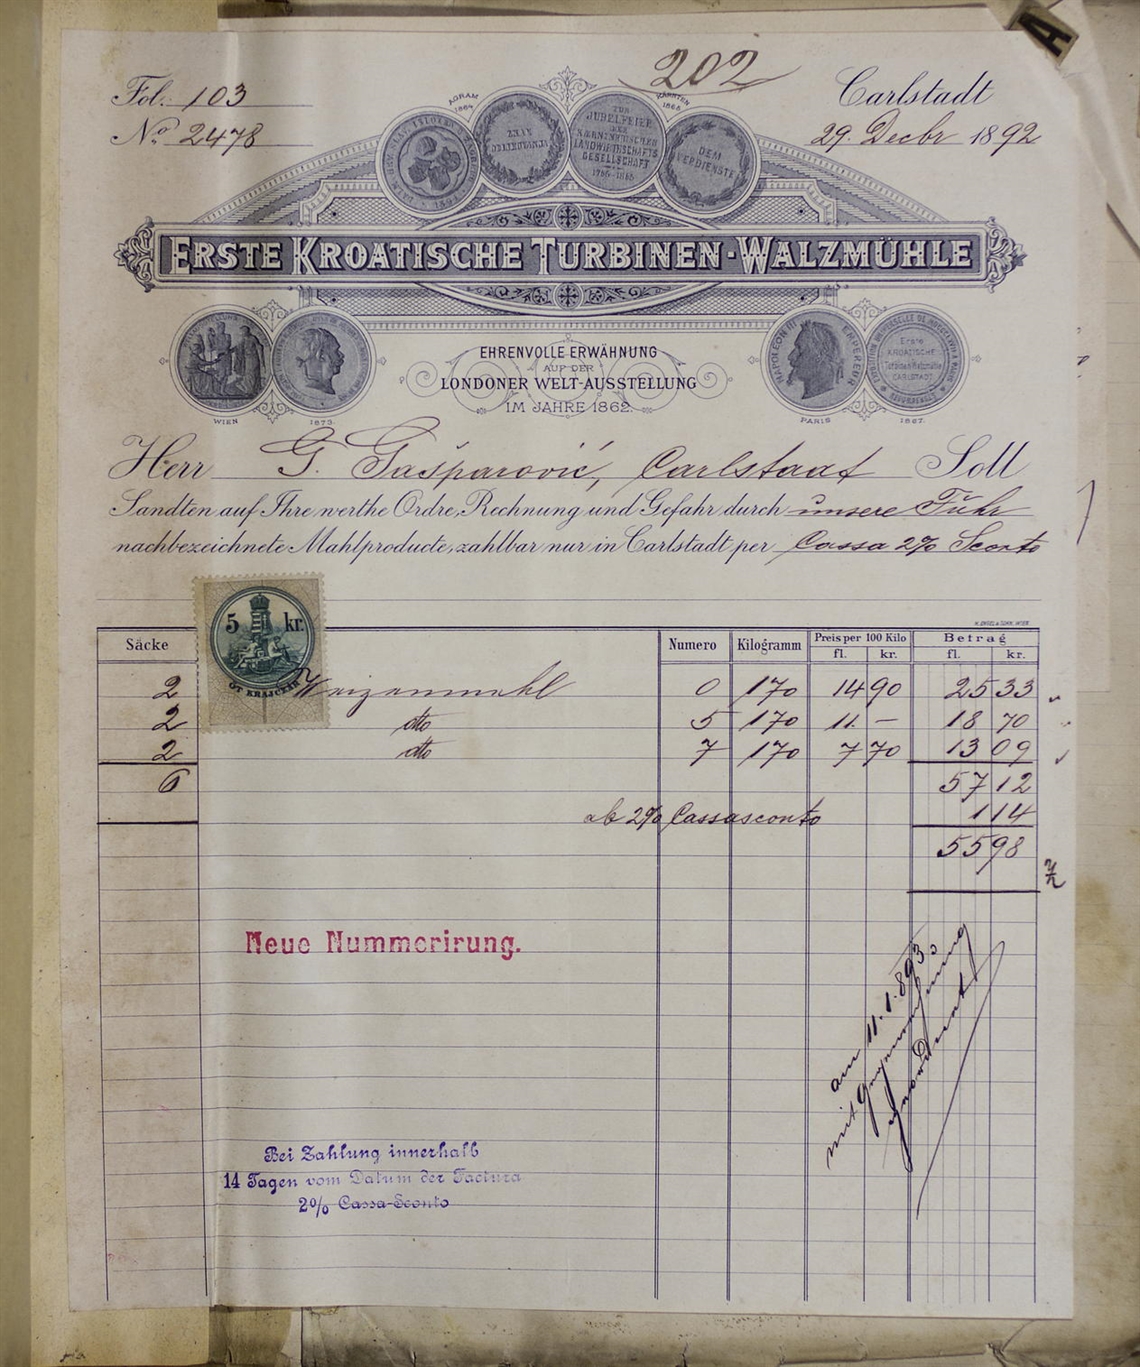 202
Fol: 103
Carlstadt
No 2478
29. Decbr 1892
AGRAM
1864
KÄRNTEN
1865
ZUR
JUBELFEIER
DER
KAERNTNERISCHEN
LANDWIRTHSCHAFTS
GESELLSCHAFT
DEM
VERDIENSTE
ERSTE KROATISCHE TURBINEN-WALZMÜHLE
EHRENVOLLE ERWÄHNUNG
AUF DER
LONDONER WELT-AUSSTELLUNG
IM JAHRE 1862.
NAPOLEON III EMPEREUR
Erste
KROATISCHE
Turbinen Walzmühle
CARLSTADT
WIEN 1873.
PARIS 1867.
Herr G. Gašparović, Carlstadt Soll
Sandten auf Ihre werthe Ordre, Rechnung und Gefahr durch unsere Fuhr
nachbezeichnete Mahlproducte, zahlbar nur in Carlstadt per Cassa 2% Sconto
5 kr.
ÖT KRAJCZÁR
Säcke Numero Kilogramm Preis per 100 Kilo Betrag
fl. kr. fl. kr.
2 Waizenmehl 0 170 14 90 25 33
2 dto 5 170 11 — 18 70
2 dto 7 170 7 70 13 09
6 57 12
ab 2% Cassasconto 1 14
55 98
Neue Nummerirung.
am 11.1.893
mit
Bei Zahlung innerhalb
14 Tagen vom Datum der Factura
2% Cassa-Sconto